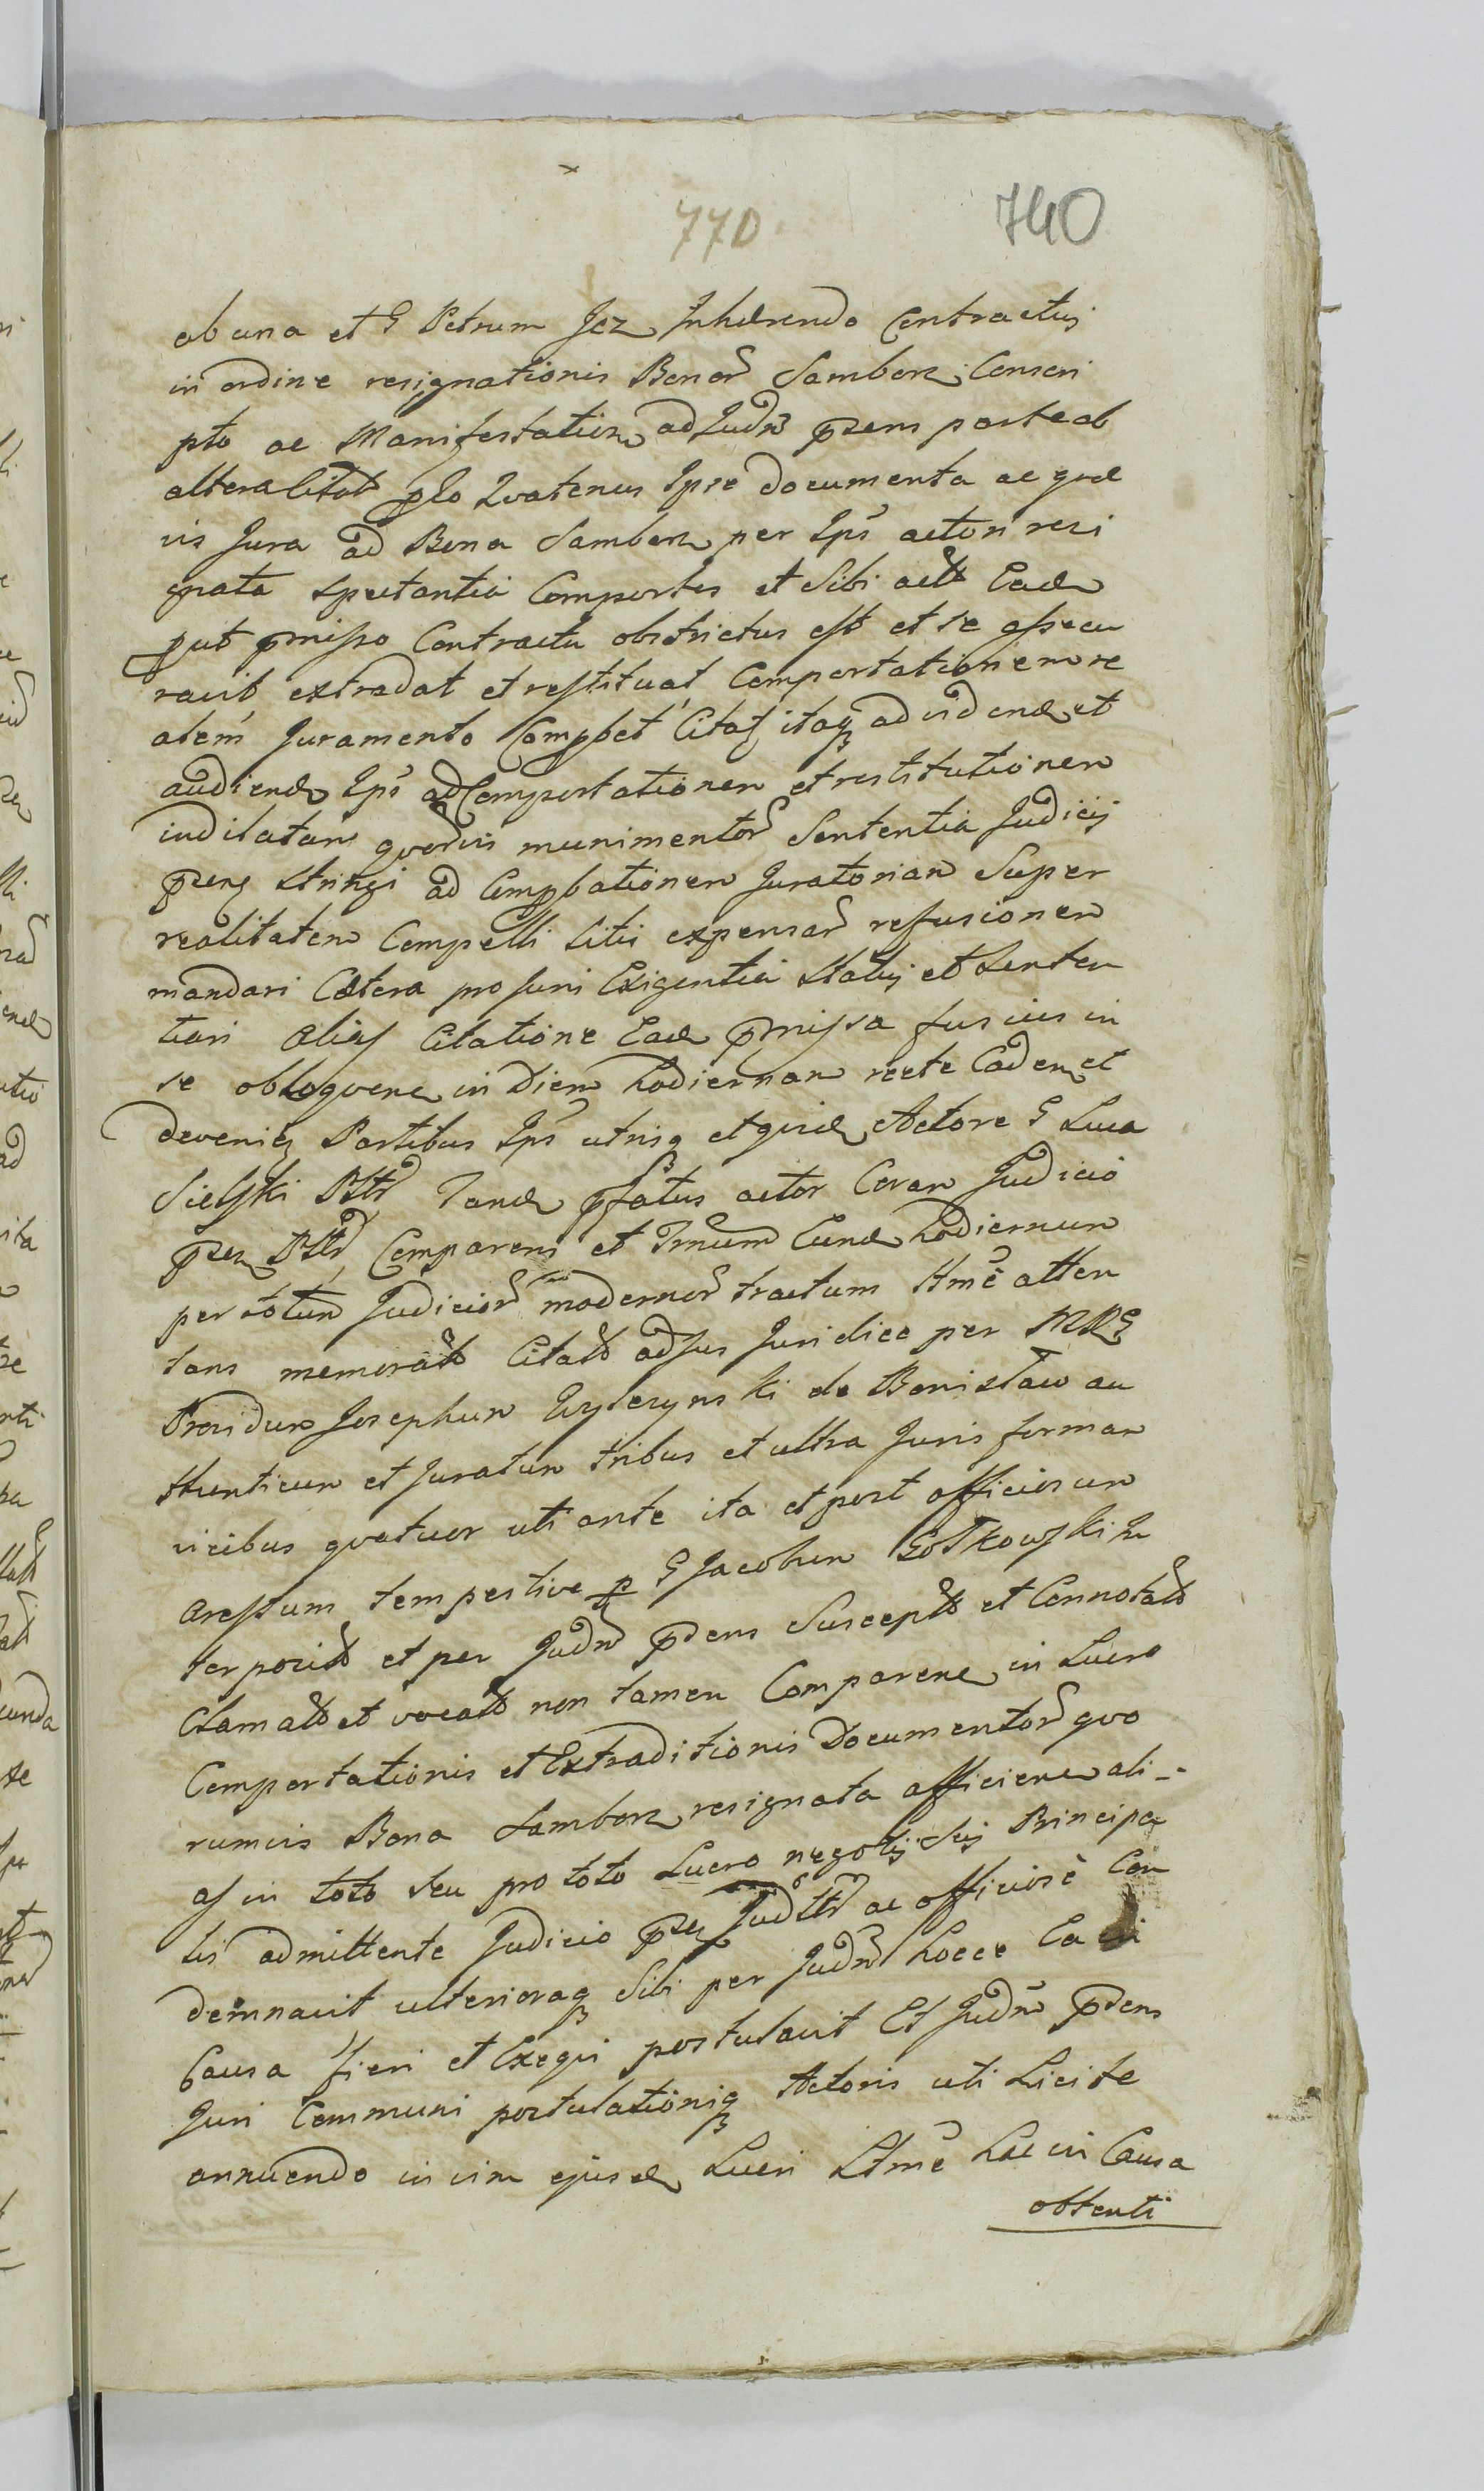 770
740
ab una et G Petrum Jez Inhærendo Contractuj
in ordine resignationis Bonor Samborz Conscri
pto ac Manifestation ad Judm psens parte ab
altera Citat plo Quatenus Ipse documenta ac quæ
vis Jura ad Bona Samborz per Ips actor resi
gnata spectantia Comportes et Sibi actt Ead
put pmisso Contractu obstrictus est et se assecu
ravit extradat et restituat Comportationem re
alem Juramento Compbet Citat itaq ad vidend et
audiend Ips ad Comportationem et restitutionem
inditatam quorvis munimentor Sententia Judicij
psenq stringi ad Compbationem Juratoriam Super
realitatem Compelli Litis expensar refusionem
mandari Cætera pro Juri Exigentia Statuj et Senten
tiari alias Citatione Ead pmissa fusius in
se obloquen in Diem hodiernam recte Caden et
devenien Partibus Ips utrisq et quid Actore G Luca
Sielski Tand pfatus actor Coram Judicio
psen Comparens et Trnum Eund hodiernum
per totum Judicior modernor tractum Ittme atten
tans memorat Citatt ad Jus Juridice per
Providum Josephum Wylezynski de Bonislaw au
thenticum et Juratum tribus et ultra Juris forman
vicibus quatuor uti ante ita et post officiosum
arestum tempestive p G Jacobum Golkowski In
terposit et per Judm psens Susceptt et Connotatt
Clamatt et vocatt non tamen Comparen in Lucro
Comportationis et Extraditionis Documentor quo
rumvis Bona Samborz resignata afficien ali-
as in toto seu pro toto Lucro negotij Sui Principa
lis admittente Judicio psen Juditt ac officiose Con
demnavit ulterioraq Sibi per Judm hocce Ea in
Causa fieri et Exequi postulavit Et Judm psens
Juri Communi postulationiq Actoris uti Licite
annuendo in vim ejusd Lucri Ittme hac in Causa
obtenti